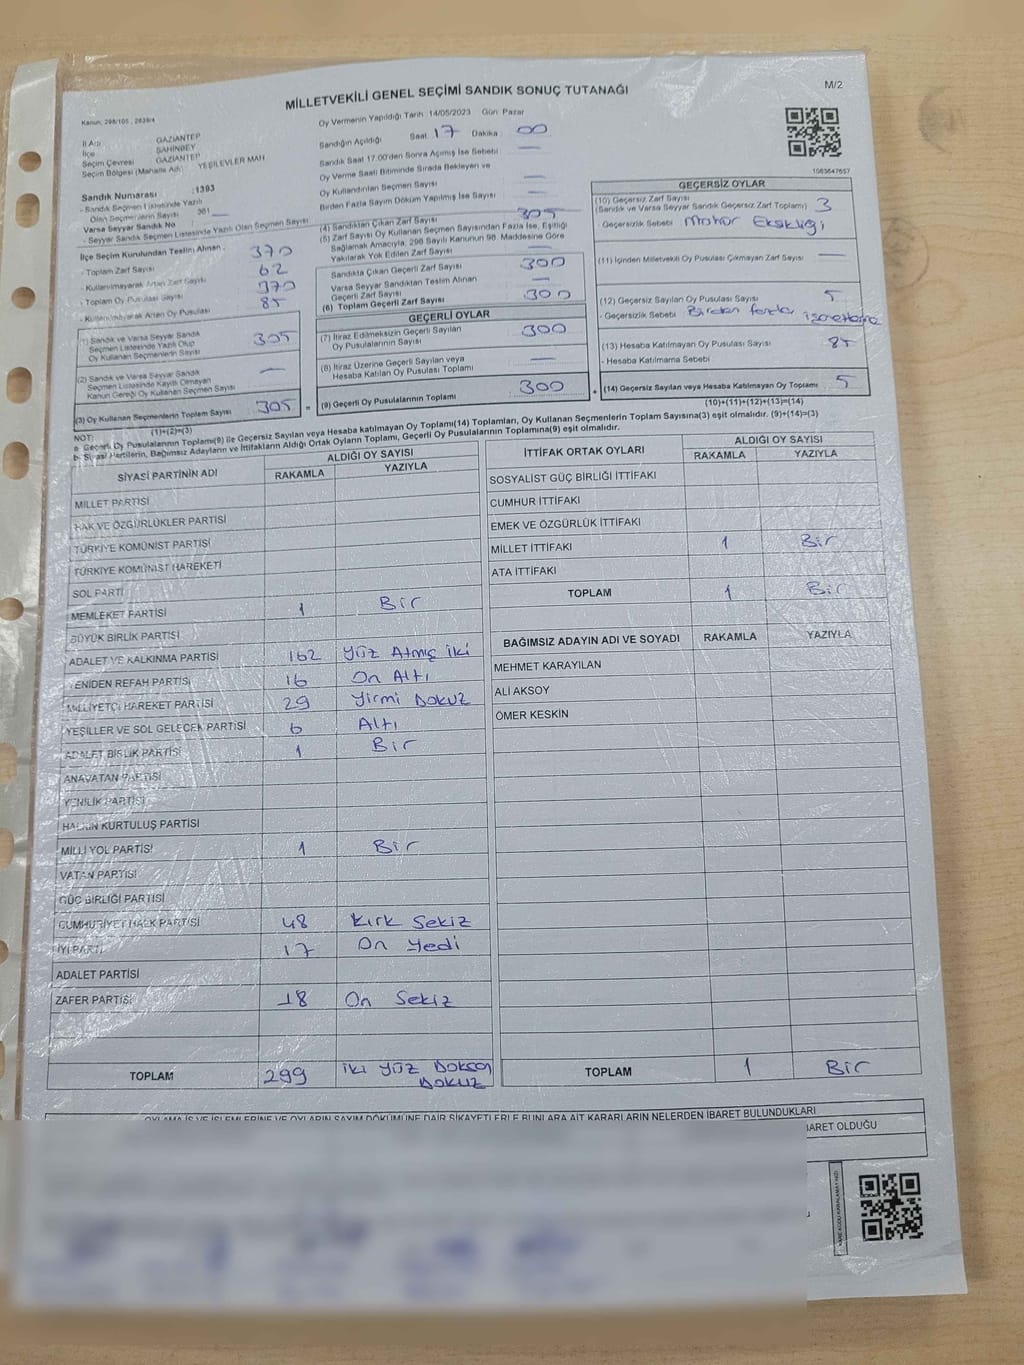 M/2
MİLLETVEKİLİ GENEL SEÇİMİ SANDIK SONUÇ TUTANAĞI
Kanun, 298/105 , 2839/4
Oy Vermenin Yapıldığı Tarih :14/05/2023 Gün: Pazar
İl Adı GAZİANTEP
İlçe ŞAHİNBEY
Seçim Çevresi GAZİANTEP
Seçim Bölgesi (Mahalle Adı) YEŞİLEVLER MAH
Sandık Numarası :1393
- Sandık Seçmen Listesinde Yazılı
Olan Seçmenlerin Sayısı 361
Varsa Seyyar Sandık No
- Seyyar Sandık Seçmen Listesinde Yazılı Olan Seçmen Sayısı
İlçe Seçim Kurulundan Teslim Alınan
- Toplam Zarf Sayısı 370
- Kullanılmayarak Artan Zarf Sayısı 62
- Toplam Oy Pusulası Sayısı 370
- Kullanılmayarak Artan Oy Pusulası 85
(1) Sandık ve Varsa Seyyar Sandık
Seçmen Listesinde Yazılı Olup
Oy Kullanan Seçmenlerin Sayısı 305
(2) Sandık ve Varsa Seyyar Sandık
Seçmen Listesinde Kayıtlı Olmayan
Kanun Gereği Oy Kullanan Seçmen Sayısı —
(3) Oy Kullanan Seçmenlerin Toplam Sayısı 305 =
(1)+(2)=(3)
Sandığın Açıldığı Saat: 17 Dakika : 00
Sandık Saat 17.00'den Sonra Açılmış İse Sebebi —
Oy Verme Saati Bitiminde Sırada Bekleyen ve
Oy Kullandırılan Seçmen Sayısı —
Birden Fazla Sayım Döküm Yapılmış İse Sayısı —
(4) Sandıktan Çıkan Zarf Sayısı 305
(5) Zarf Sayısı Oy Kullanan Seçmen Sayısından Fazla İse, Eşitliği
Sağlamak Amacıyla, 298 Sayılı Kanunun 98. Maddesine Göre
Yakılarak Yok Edilen Zarf Sayısı —
Sandıkta Çıkan Geçerli Zarf Sayısı 300
Varsa Seyyar Sandıktan Teslim Alınan
Geçerli Zarf Sayısı —
(6) Toplam Geçerli Zarf Sayısı 300
GEÇERLİ OYLAR
(7) İtiraz Edilmeksizin Geçerli Sayılan
Oy Pusulalarının Sayısı 300
(8) İtiraz Üzerine Geçerli Sayılan veya
Hesaba Katılan Oy Pusulası Toplamı —
(9) Geçerli Oy Pusulalarının Toplamı 300 +
1583647657
GEÇERSİZ OYLAR
(10) Geçersiz Zarf Sayısı
(Sandık ve Varsa Seyyar Sandık Geçersiz Zarf Toplamı) 3
Geçersizlik Sebebi Mühür Eksikliği
(11) İçinden Milletvekili Oy Pusulası Çıkmayan Zarf Sayısı —
(12) Geçersiz Sayılan Oy Pusulası Sayısı 5
- Geçersizlik Sebebi Birden fazla işaretleme
(13) Hesaba Katılmayan Oy Pusulası Sayısı 85
- Hesaba Katılmama Sebebi
(14) Geçersiz Sayılan veya Hesaba Katılmayan Oy Toplamı 5
(10)+(11)+(12)+(13)=(14)
NOT:
a- Geçerli Oy Pusulalarının Toplamı(9) ile Geçersiz Sayılan veya Hesaba katılmayan Oy Toplamı(14) Toplamları, Oy Kullanan Seçmenlerin Toplam Sayısına(3) eşit olmalıdır. (9)+(14)=(3)
b- Siyasi Partilerin, Bağımsız Adayların ve İttifakların Aldığı Ortak Oyların Toplamı, Geçerli Oy Pusulalarının Toplamına(9) eşit olmalıdır.
SİYASİ PARTİNİN ADI ALDIĞI OY SAYISI
RAKAMLA YAZIYLA
MİLLET PARTİSİ
HAK VE ÖZGÜRLÜKLER PARTİSİ
TÜRKİYE KOMÜNİST PARTİSİ
TÜRKİYE KOMÜNİST HAREKETİ
SOL PARTİ
MEMLEKET PARTİSİ 1 Bir
BÜYÜK BİRLİK PARTİSİ
ADALET VE KALKINMA PARTİSİ 162 Yüz Atmış iki
YENİDEN REFAH PARTİSİ 16 On Altı
MİLLİYETÇİ HAREKET PARTİSİ 29 Yirmi Dokuz
YEŞİLLER VE SOL GELECEK PARTİSİ 6 Altı
ADALET BİRLİK PARTİSİ 1 Bir
ANAVATAN PARTİSİ
YENİLİK PARTİSİ
HALKIN KURTULUŞ PARTİSİ
MİLLİ YOL PARTİSİ 1 Bir
VATAN PARTİSİ
GÜÇ BİRLİĞİ PARTİSİ
CUMHURİYET HALK PARTİSİ 48 Kırk Sekiz
İYİ PARTİ 17 On Yedi
ADALET PARTİSİ
ZAFER PARTİSİ 18 On Sekiz
TOPLAM 299 iki Yüz Doksan Dokuz
İTTİFAK ORTAK OYLARI ALDIĞI OY SAYISI
RAKAMLA YAZIYLA
SOSYALİST GÜÇ BİRLİĞİ İTTİFAKI
CUMHUR İTTİFAKI
EMEK VE ÖZGÜRLÜK İTTİFAKI
MİLLET İTTİFAKI 1 Bir
ATA İTTİFAKI
TOPLAM 1 Bir
BAĞIMSIZ ADAYIN ADI VE SOYADI RAKAMLA YAZIYLA
MEHMET KARAYILAN
ALİ AKSOY
ÖMER KESKİN
TOPLAM 1 Bir
OYLAMA İŞ VE İŞLEMLERİNE VE OYLARIN SAYIM DÖKÜMÜNE DAİR ŞİKAYETLERLE BUNLARA AİT KARARLARIN NELERDEN İBARET BULUNDUKLARI
BARET OLDUĞU